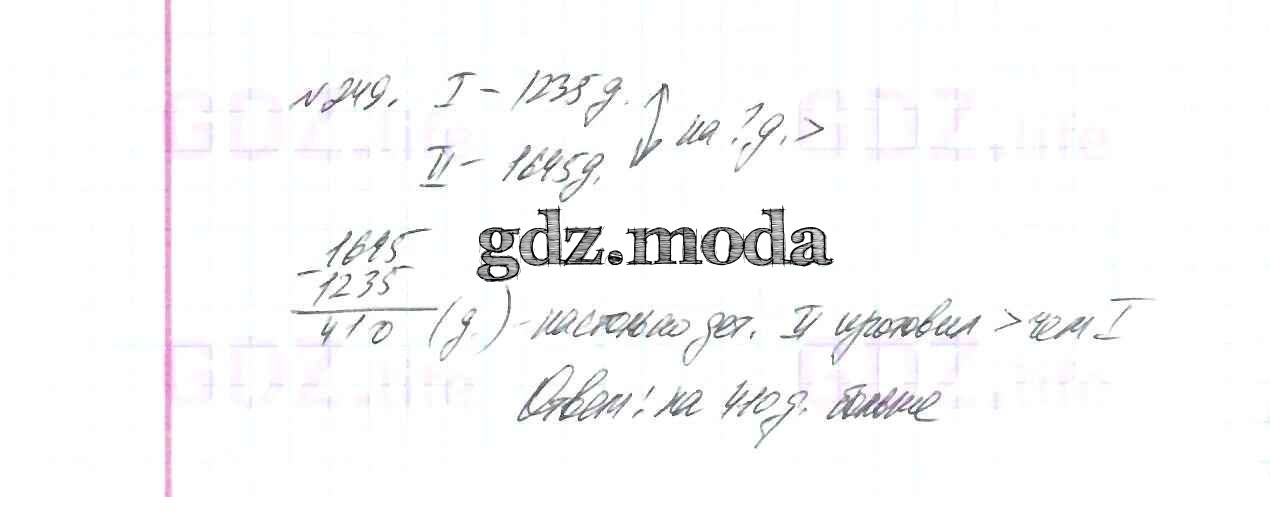 №249. I – 1235д.
на ? д. >
II – 1645д.
gdz.moda
1645
– 1235
410 (д.) – настолько дет. II изготовил > чем I
Ответ: на 410 д. больше
GDZ.life GDZ.life
GDZ.life GDZ.life